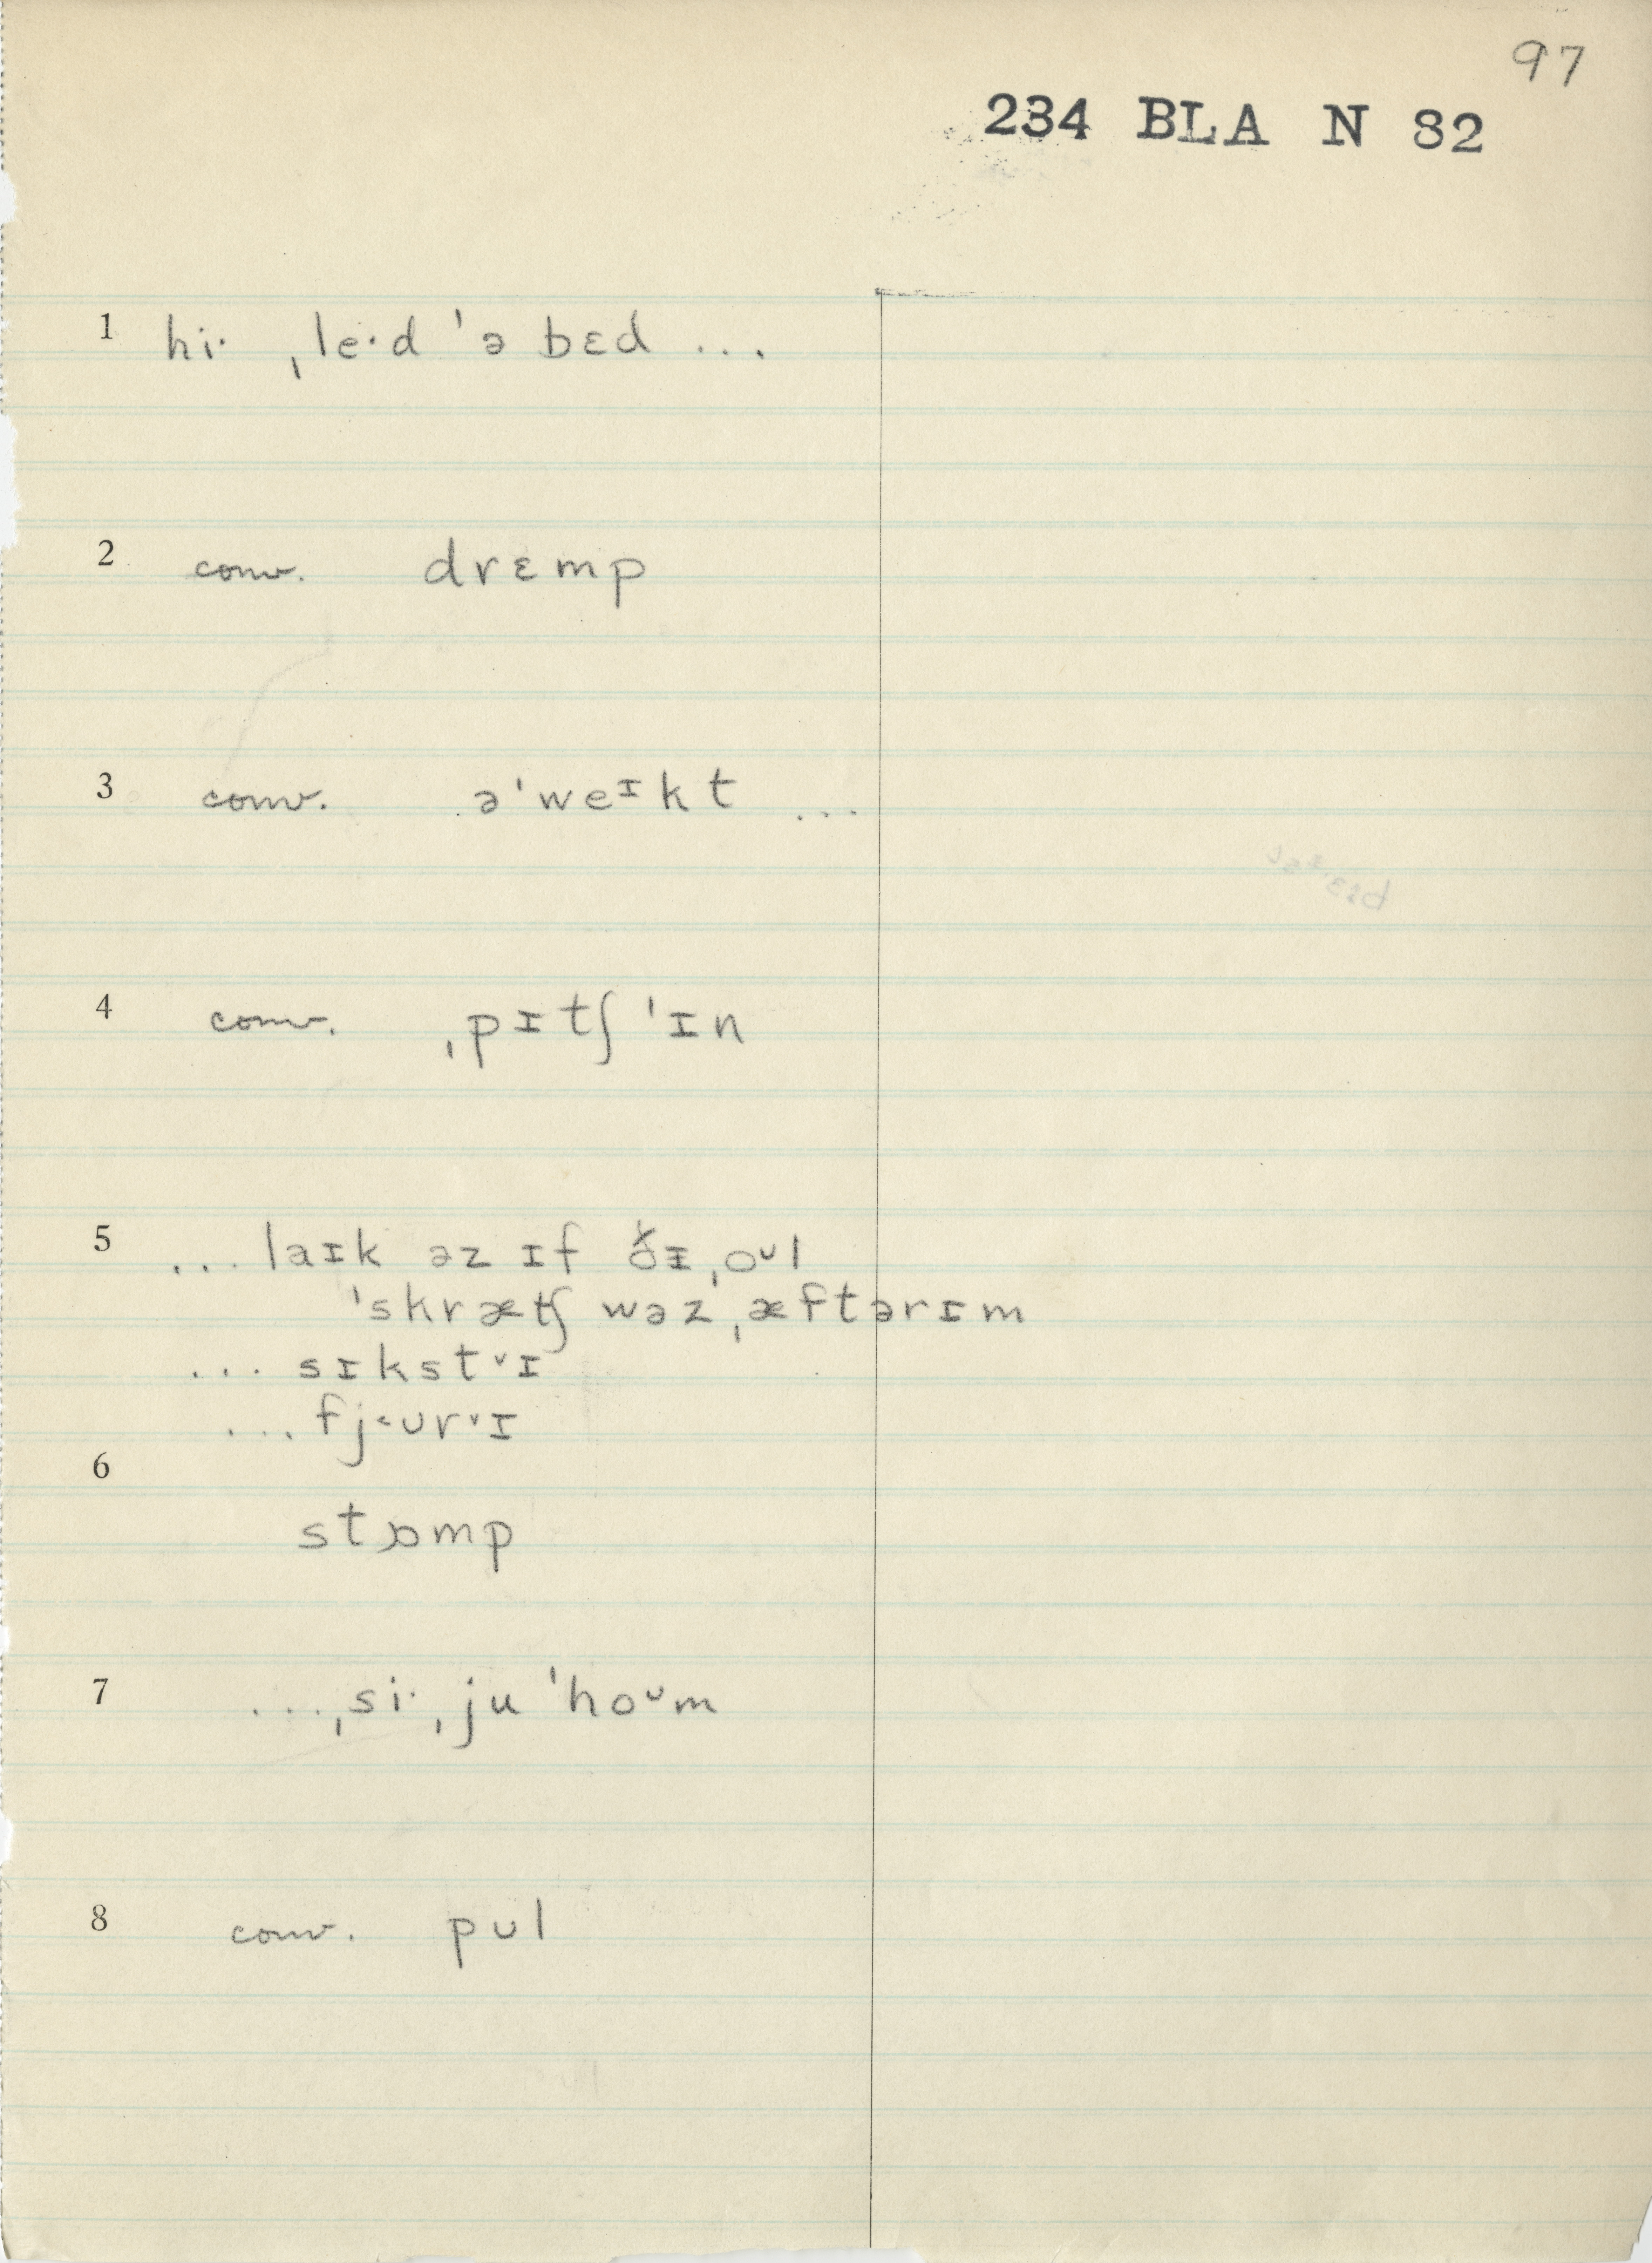 97
234 BLA N 82
1 hiˑ ˌleˑd ˈə bɛd ...
2 conv. drɛmp
3 conv. əˈweᶦkt ...
4 conv. ˌpɪtʃ ˈɪn
5 ... laɪk əz ɪf ˌoᶷl
ˈskrætʃ wəz ˌæftərɪm
... sɪkst˅ɪ
... fj˂ʊr˅ɪ
6
stɒmp
7 ... ˌsiˑ ˌju ˈhoᶷm
8 conv. pʊl